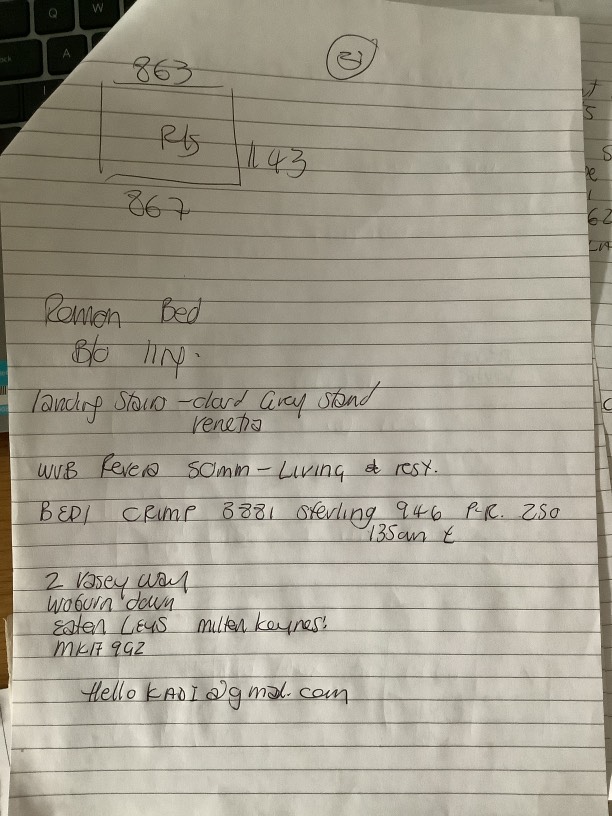 Q W
A
31
863
Rts
1143
867
Roman Bed
B/o
landing stairs - Gray stand
venetia
WVB 50mm - Living & rest.
BED1 CRIMP 3881 sterling 946 P.R. 250
2 Vasey way
Woburn down
Eaten Leys milten keynes
MK17 9GZ
Hello KADI @gmal.com